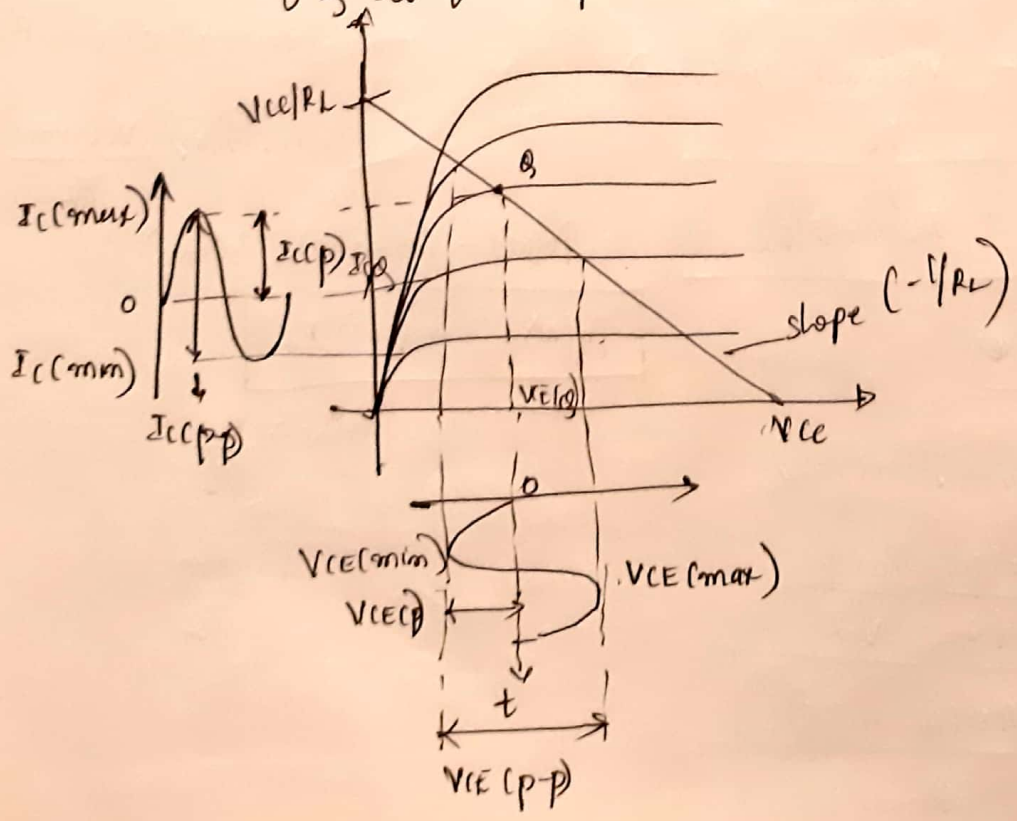 VCC/RL
Q
IC(max)
IC(p) ICQ
0
IC(min)
IC(p-p)
slope (-1/RL)
VCE(Q)
VCC
0
VCE(min)
VCE(max)
VCE(p)
t
VCE (p-p)